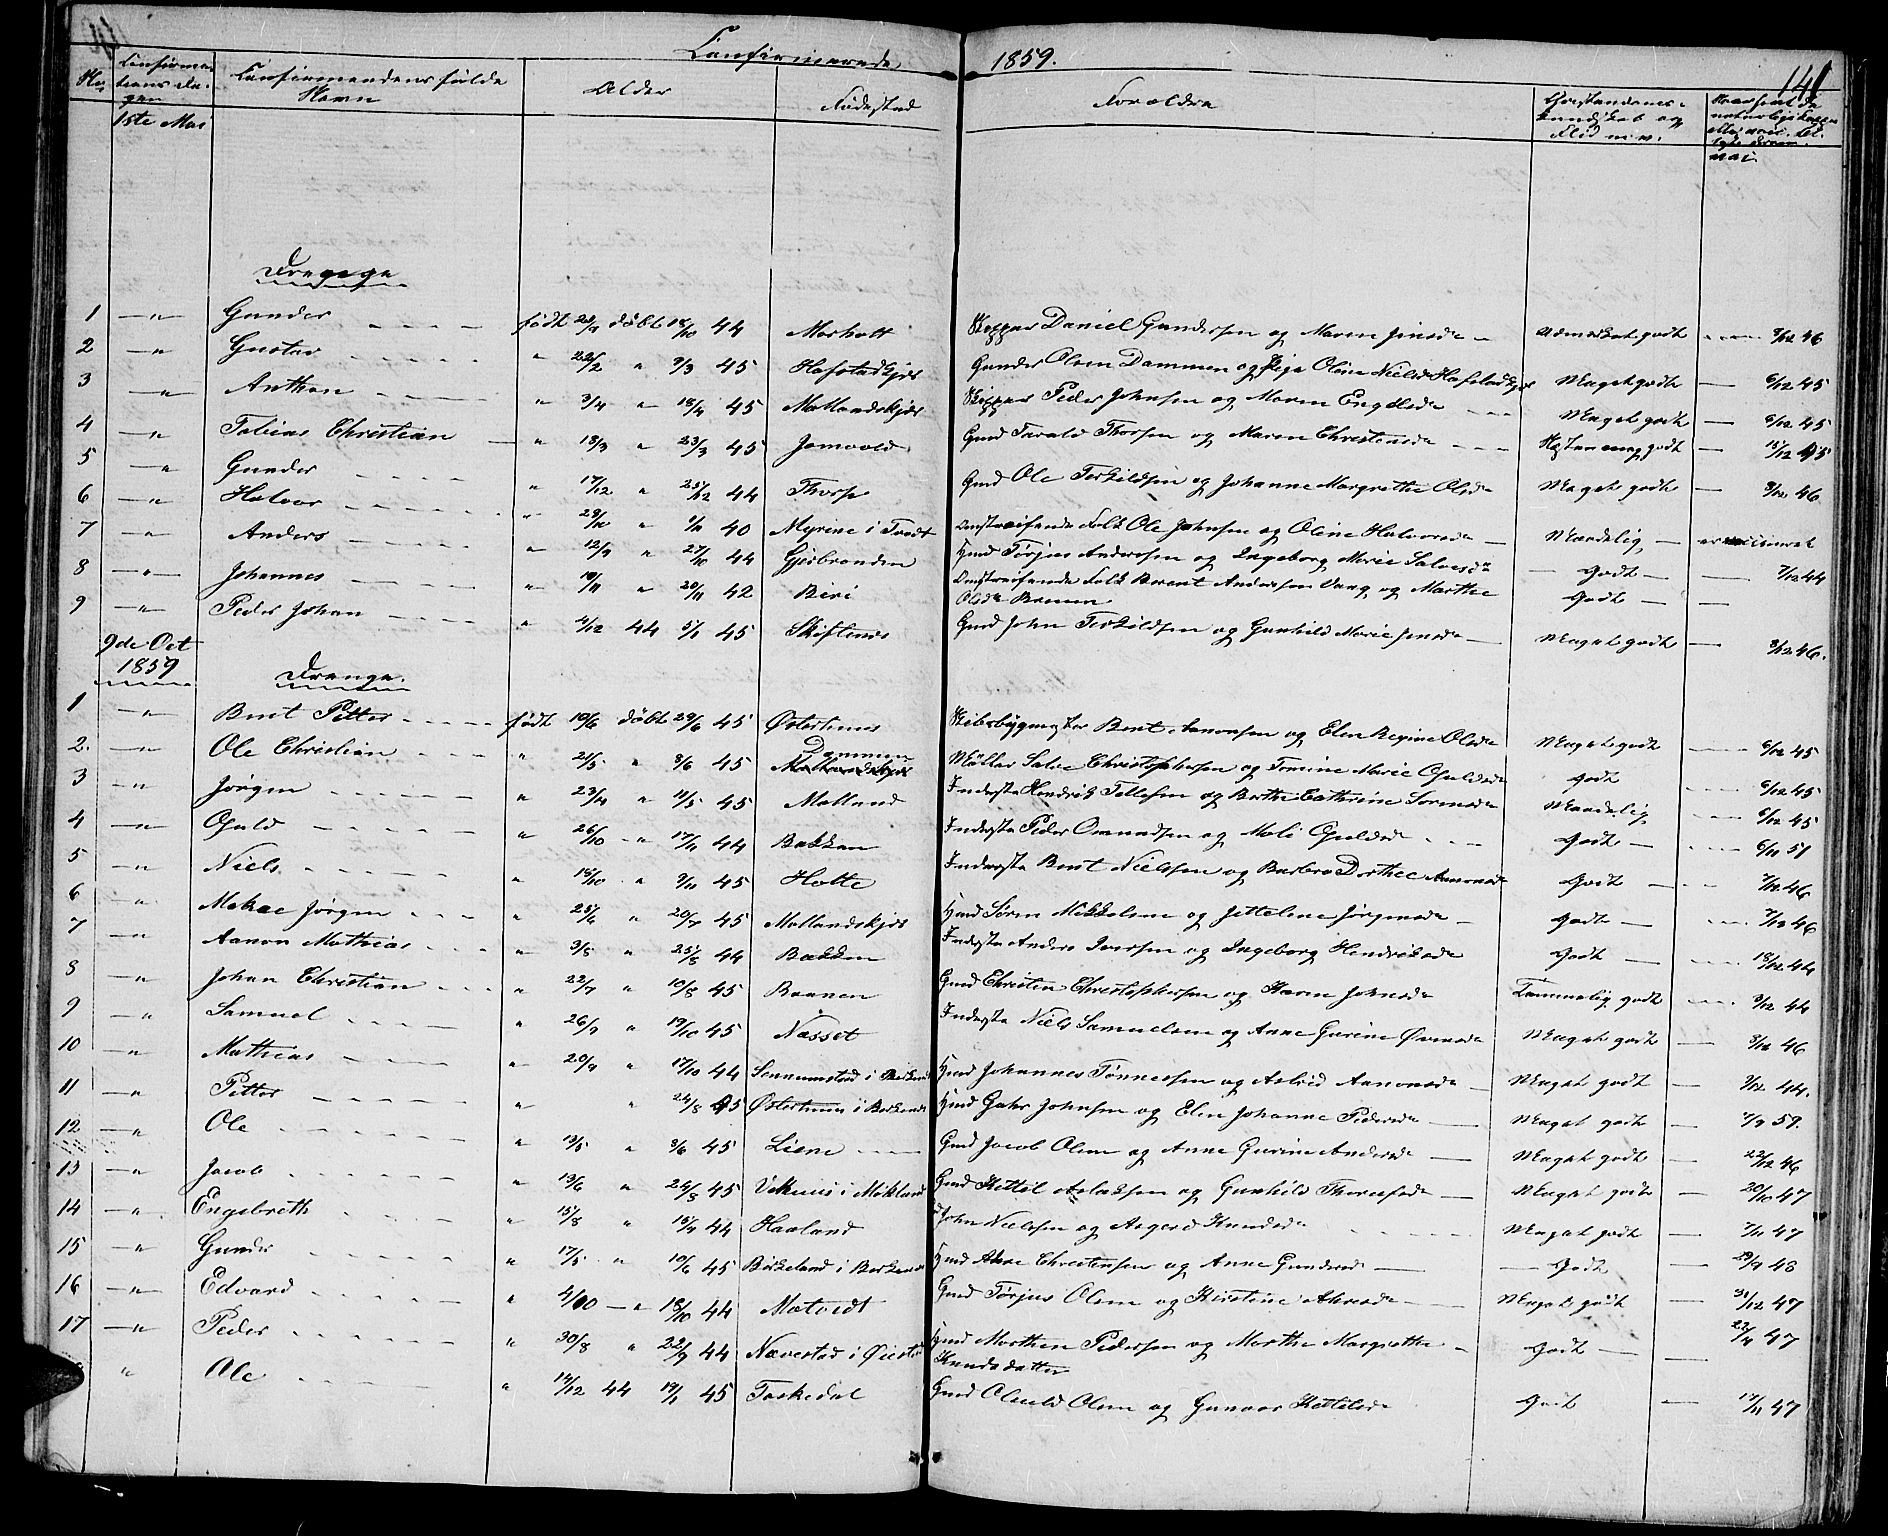 Confirmerede 1859. 141
No Confirmations Dagen Confirmandens fulde Navn Alder Fødested Forældre Christendoms-kundskab og Flid m.v.
1ste Mai
Drenge
1 —"— Gunder født 29/9 døbt 18/10 44 Morholt Skipper Daniel Gundersen og Maren Jensdr udmærket godt 3/12 46
2 —"— Gustav " 22/2 " 9/3 45 Hafstadkjær Gunder Olsen Dammen og Pige Oline Nielsdr Hafstadkjær Meget godt 6/12 45
3 —"— Anthon " 3/4 " 18/4 45 Mollandskjær Skipper Peder Johnsen og Maren Engelsdr Meget godt 6/12 45
4 —"— Tobias Christian " 18/3 " 23/3 45 Jomvold Gmd Tarald Thorsen og Maren Christensdr godt 15/12 45
5 —"— Gunder " 17/12 " 25/12 44 Thorp Gmd Ole Terkildsen og Johanne Margrethe Olsdr Meget godt 3/12 46
6 —"— Halvor " 29/10 " 1/11 40 Myrene i Tvedt Omstreifende Folk Ole Johnsen og Oline Halvorsdr Maadelig er vaccineret
7 —"— Anders " 12/9 " 27/10 44 Gjerbranden Hmd Tørjus Andersen og Ingeborg Marie Salvesdr Godt 7/12 44
8 —"— Johannes " 19/11 " 20/11 42 Biri Omstreifende Folk Berent Andersen Vang og Marthe Olsdr Godt —
9 —"— Peder Johan " 4/12 44 5/1 45 Skiftenes Gmd John Terkildsen og Gunhild Marie Jensdr Meget godt 3/12 46.
9de Oct 1859
Drenge.
1 —"— Bent Petter født 19/6 døbt 29/6 45 Østerhuus Skibsbygmester Bent Aanonsen og Elen Regine Olsdr Meget godt 6/12 45
2. —"— Ole Christian " 21/5 " 8/6 45 Dammen Møller Salve Christophersen og Tomine Marie Gjuldsdr godt 6/12 45
3 —"— Jørgen " 23/4 " 11/5 45 Molland Inderste Hendrik Tellefsen og Berthe Cathrine Sørensdr Maadelig 6/12 45
4 —"— Gjuld " 26/10 " 17/11 44 Bakken Inderste Peder Osmundsen og Mali Gjuldsdr Godt 6/11 51
5 —"— Niels " 18/10 " 9/11 45 Holte Inderste Bent Nielsen og Barbro Dorthea Aanonsdr Godt 7/12 46
6 —"— Jørgen " 25/6 " 20/7 45 Mollandskjær Hmd Søren Mikkelsen og Jittelene Jørgensdr Godt 7/12 46
7 —"— Aanon Mathias " 3/8 " 25/8 44 Bakken Inderste Anders Iversen og Ingeborg Hendriksdr Godt 18/12 44
8 —"— Johan Christian " 22/7 " 10/8 45 Braanen Gmd Christen Christophersen og Karen Johnsdr Temmelig godt 3/12 44
9 —"— Samuel " 26/9 " 19/10 45 Næsset Inderste Niels Samuelsen og Anne Gurine Ormsdr Meget godt 3/12 46
10 —"— Mathias " 20/9 " 17/10 44 Sennumstad i Birkenes Hmd Johannes Tønnessen og Astrid Aanonsdr Meget godt 3/12 44.
11 —"— Petter " 24/8 45 Østerhuus i Birkenes Hmd Gahr Johnsen og Elen Johanne Pedersdr Meget godt 7/9 59.
12 —"— Ole " 13/5 " 8/6 45 Liene Gmd Jacob Olsen og Anne Gurine Andersdr Meget godt 22/12 46
13 —"— Jacob " 13/6 " 24/8 45 Vehuus i Møkland Gmd Kittel Aslaksen og Gunhild Thoresdr Meget godt 20/10 47
14 —"— Engebreth " 15/8 " 15/9 44 Haaland John Nielsen og Asgerd Knudsdr Meget godt 7/11 47
15 —"— Gunder " 17/5 " 10/6 45 Birkeland i Birkenes Hmd Christensen og Anne Gundersdr Godt 29/9 48
16 —"— Edvard " 4/10 — " 18/10 44 Matvedt Gmd Tørjus Olsen og Kirstine Meget godt 31/12 47
17 —"— Peder " 30/8 " 22/9 44 Nævestad i Øiestad Hmd Morthen Pedersen og Marthe Margrethe Knudsdatter Godt 22/11 47
" Ole " 14/12 44 19/1 45 Taskedal Gmd Oluld Olsen og Gunvor Kittelsdr Godt 17/11 47